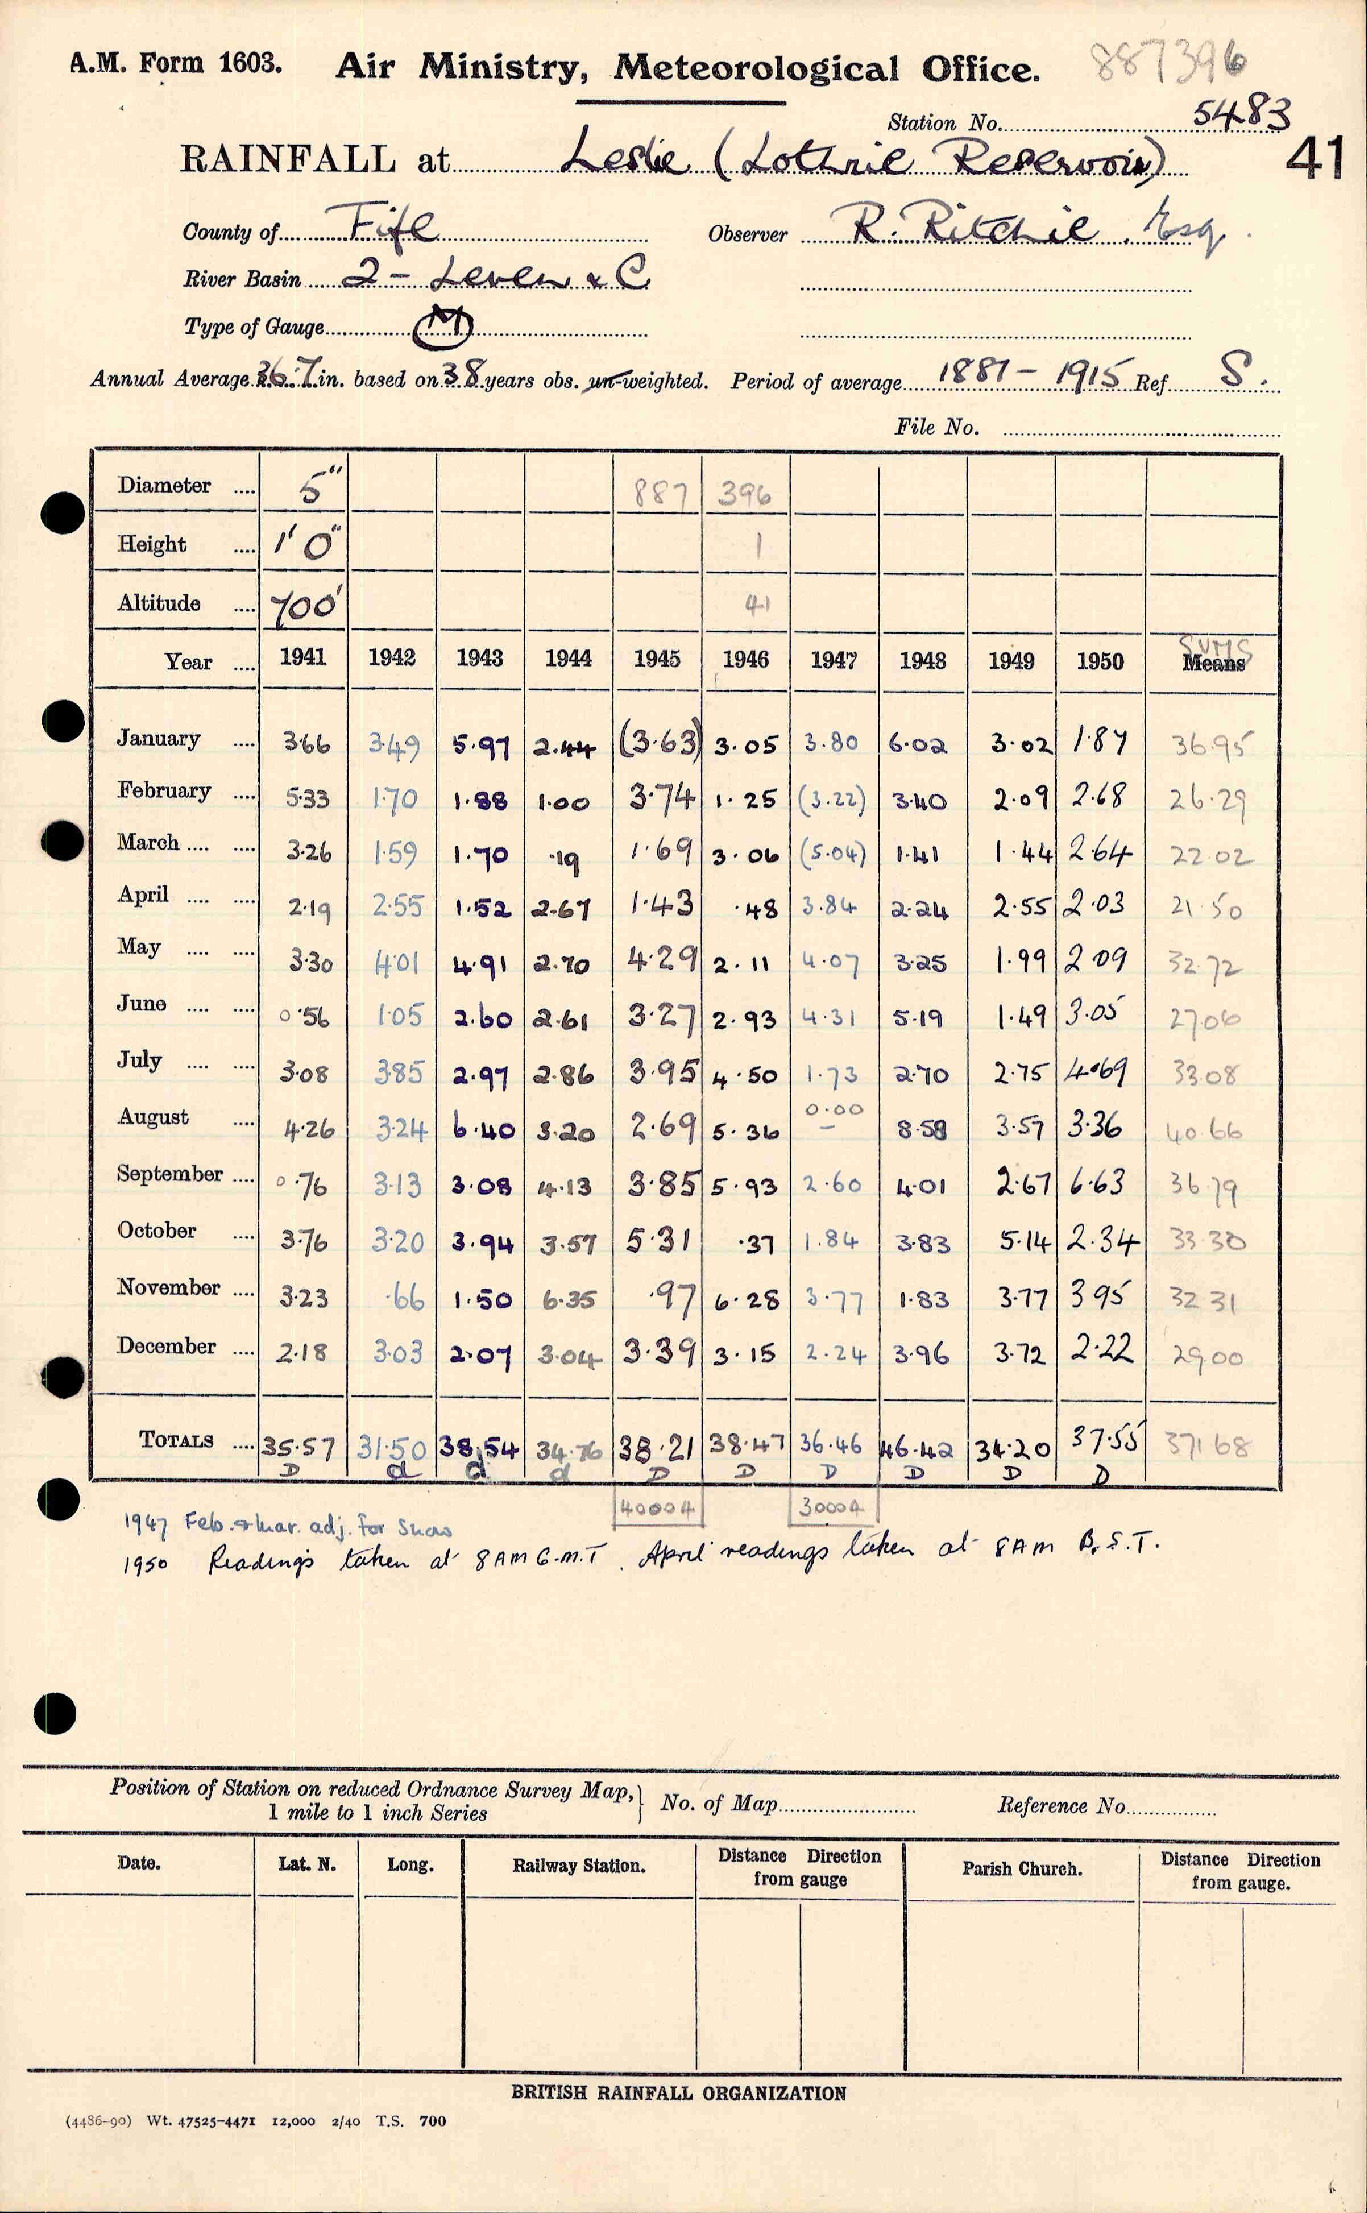 A.M. Form 1603. Air Ministry, Meteorological Office. 887396
Station No. 5483
RAINFALL at Leslie (Lothrie Reservoir) 41
County of Fife Observer R. Ritchie, Esq.
River Basin 2 - Leven & C
Type of Gauge M
Annual Average 36.7 in. based on 38 years obs. un-weighted. Period of average 1881-1915 Ref S.
File No.
Diameter .... 5" 887 396
Height .... 1' 0" 1
Altitude .... 700' 41
Year .... 1941 1942 1943 1944 1945 1946 1947 1948 1949 1950 SUMS Means
January .... 3.66 3.49 5.97 2.44 (3.63) 3.05 3.80 6.02 3.02 1.87 36.95
February .... 5.33 1.70 1.88 1.00 3.74 1.25 (3.22) 3.40 2.09 2.68 26.29
March .... .... 3.26 1.59 1.70 .19 1.69 3.06 (5.04) 1.41 1.44 2.64 22.02
April .... .... 2.19 2.55 1.52 2.67 1.43 .48 3.84 2.24 2.55 2.03 21.50
May .... .... 3.30 4.01 4.91 2.70 4.29 2.11 4.07 3.25 1.99 2.09 32.72
June .... .... 0.56 1.05 2.60 2.61 3.27 2.93 4.31 5.19 1.49 3.05 27.06
July .... .... 3.08 3.85 2.97 2.86 3.95 4.50 1.73 2.70 2.75 4.69 33.08
August .... 4.26 3.24 6.40 3.20 2.69 5.36 0.00 – 8.58 3.57 3.36 40.66
September .... 0.76 3.13 3.08 4.13 3.85 5.93 2.60 4.01 2.67 6.63 36.79
October .... 3.76 3.20 3.94 3.57 5.31 .37 1.84 3.83 5.14 2.34 33.30
November .... 3.23 .66 1.50 6.35 .97 6.28 3.77 1.83 3.77 3.95 32.31
December .... 2.18 3.03 2.07 3.04 3.39 3.15 2.24 3.96 3.72 2.22 29.00
TOTALS .... 35.57 31.50 38.54 34.76 38.21 38.47 36.46 46.42 34.20 37.55 371.68
D d d d D D D D D D
40004 30004
1947 Feb. & Mar. adj. for Snow
1950 Readings taken at 8 AM G.M.T. April readings taken at 8 AM B.S.T.
Position of Station on reduced Ordnance Survey Map, 1 mile to 1 inch Series } No. of Map Reference No.
Date. Lat. N. Long. Railway Station. Distance Direction from gauge Parish Church. Distance Direction from gauge.
BRITISH RAINFALL ORGANIZATION
(4486-90) Wt. 47525-4471 12,000 2/40 T.S. 700